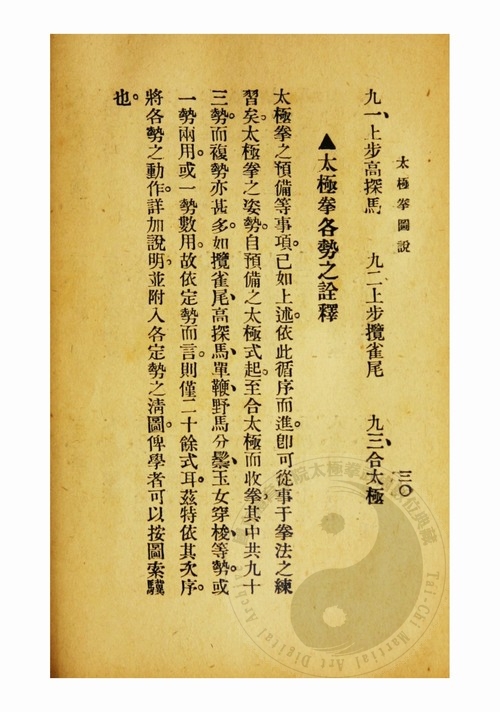 太極拳圖說
三〇
九一、上步高探馬　九二上步攬雀尾　九三、合太極
▲太極拳各勢之詮釋
太極拳之預備等事項。已如上述。依此循序而進。卽可從事于拳法之練
習矣。太極拳之姿勢。自預備之太極式起。至合太極而收拳。其中共九十
三勢。而複勢亦甚多。如攬雀尾、高探馬、單鞭、野馬分鬃、玉女穿梭、等勢。或
一勢兩用。或一勢數用。故依定勢而言。則僅二十餘式耳。茲特依其次序。
將各勢之動作。詳加說明。並附入各定勢之淸圖。俾學者可以按圖索驥
也。
Tai-Chi Martial Art Digital Arch